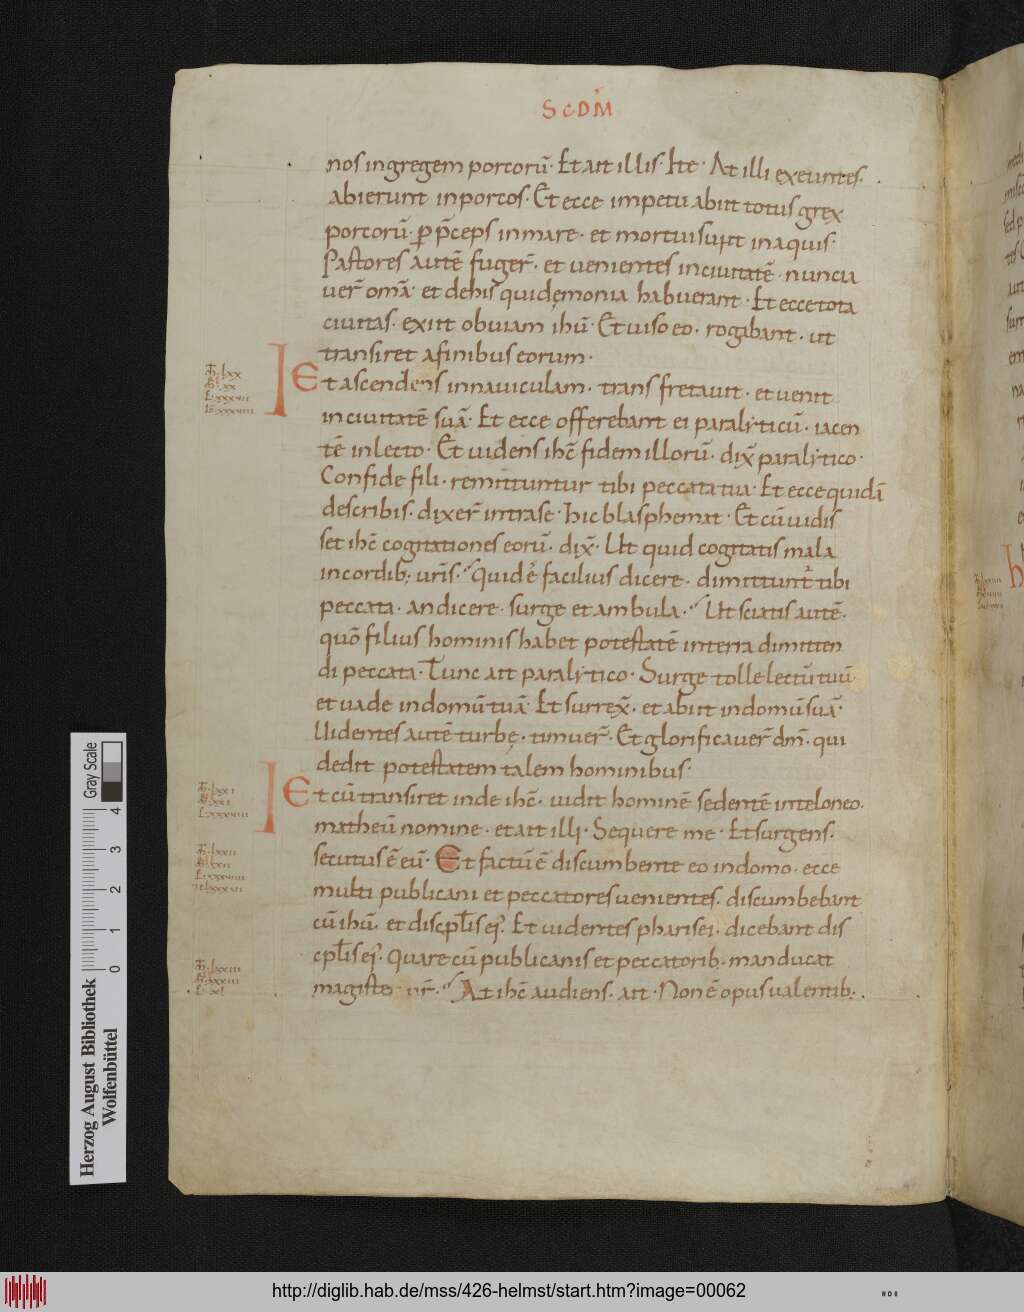 SCDM̄
nos in gregem porcorū · Et ait illis · Ite · At illi exeuntes ·
abierunt in porcos · Et ecce impetu abiit totus grex
porcorū · ꝑ p̄ceps in mare · et mortui sunt in aquis ·
Pastores autē fuger̄ · et uenientes in ciuitatē · nuncia
uer̄ om̄a · et de his qui demonia habuerant · Et ecce tota
ciuitas · exiit obuiam ihū · Et uiso eo · rogabant · ut
transiret a finibus eorum ·
Et ascendens in nauiculam · trans fretauit · et uenit
in ciuitatē suā · Et ecce offerebant ei paralyticū · iacen
tē in lecto · Et uidens ihc̄ fidem illorū · dix̄ paralytico ·
Confide fili · remittuntur tibi peccata tua · Et ecce quidā
de scribis · dixer̄ intra se · hic blasphemat · Et cū uidis
set ihc̄ cogitationes eorū · dix̄ · Ut quid cogitatis mala
in cordib; ur̄is · Quid ē facilius dicere · dimittunt̄ tibi
peccata · an dicere · surge et ambula · Ut sciatis autē ·
quō filius hominis habet potestatē in terra dimitten
di peccata · Tunc ait paralytico · Surge tolle lectū tuū ·
et uade in domū tuā · Et surrex̄ · et abiit in domū suā ·
Uidentes autē turbę · timuer̄ · Et glorificauer̄ dm̄ · qui
dedit potestatem talem hominibus ·
Et cū transiret inde ihc̄ · uidit hominē sedentē in teloneo ·
matheū nomine · et ait illi · Sequere me · Et surgens ·
secutus ē eū · Et factū ē discumbente eo in domo · ecce
multi publicani et peccatores uenientes · discumbebant
cū ihū · et discpl̄is ei᾽ · Et uidentes pharisei · dicebant dis
cpl̄is ei᾽ · Quare cū publicanis et peccatorib; manducat
magister ur̄ · At ihc̄ audiens · ait · Non ē opus ualentib; ·
Gray Scale
4 3 2 1 0
Herzog August Bibliothek
Wolfenbüttel
http://diglib.hab.de/mss/426-helmst/start.htm?image=00062